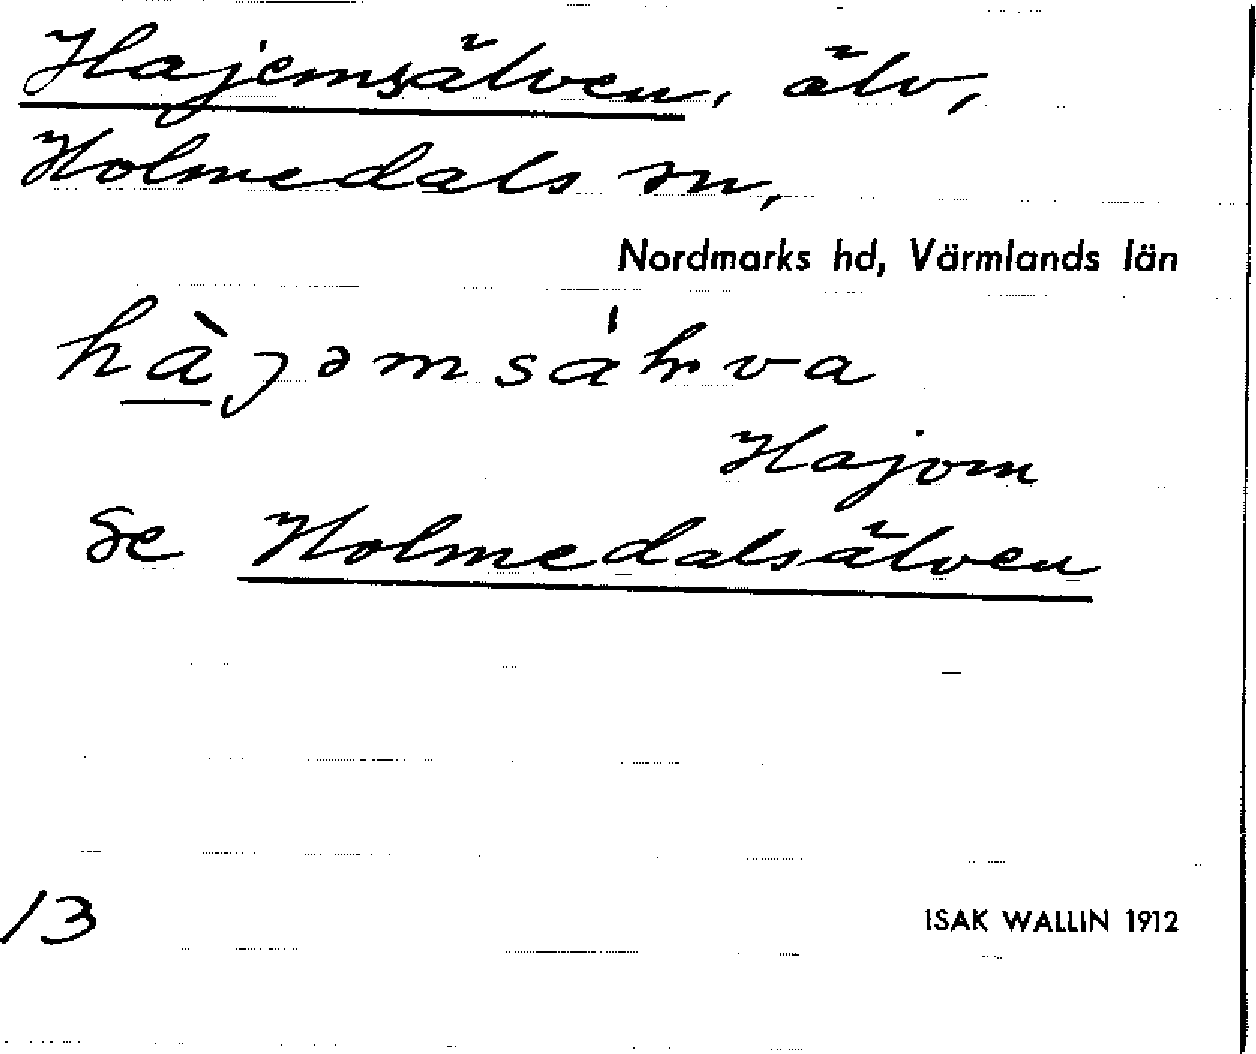 Hajemsälven, älv,
Holmedals sn,
Nordmarks hd, Värmlands län
Hajom
se Holmedalsälven
13
ISAK WALLIN 1912